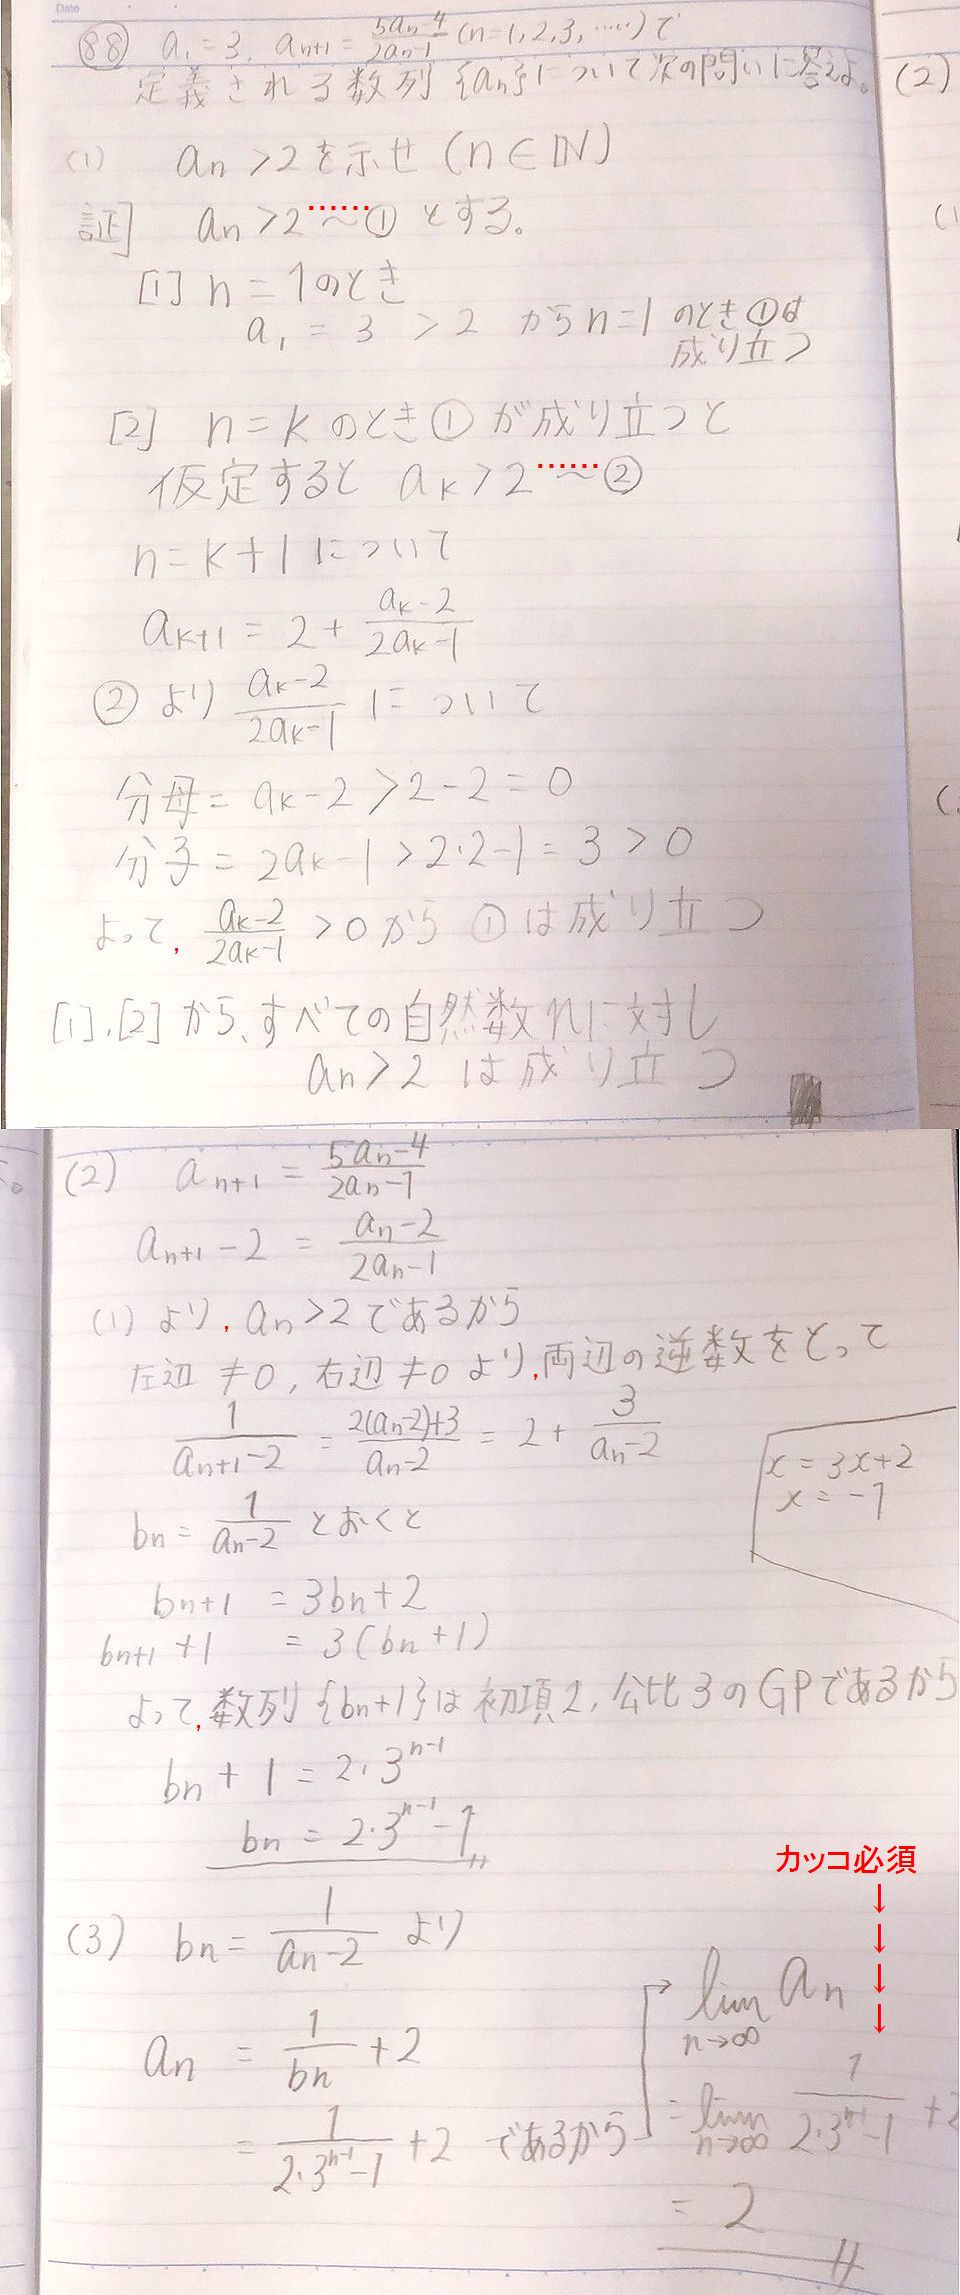 Date
(88) a₁ = 3, aₙ₊₁ = (5aₙ-4)/(2aₙ-1) (n=1,2,3,……)で
定義される数列{aₙ}について次の問いに答えよ。
(1) aₙ>2を示せ (n∈ℕ)
証] aₙ>2……~① とする。
[1] n=1のとき
a₁ = 3 > 2 からn=1 のとき①は
成り立つ
[2] n=kのとき①が成り立つと
仮定すると aₖ>2……~②
n=k+1について
aₖ₊₁ = 2 + (aₖ-2)/(2aₖ-1)
②より (aₖ-2)/(2aₖ-1) について
分母= aₖ-2>2-2=0
分子= 2aₖ-1>2・2-1=3>0
よって, (aₖ-2)/(2aₖ-1) >0から ①は成り立つ
[1],[2]から、すべての自然数nに対し
aₙ>2 は成り立つ
(2)
(2) aₙ₊₁ = (5aₙ-4)/(2aₙ-1)
aₙ₊₁-2 = (aₙ-2)/(2aₙ-1)
(1)より, aₙ>2であるから
左辺≠0, 右辺≠0より, 両辺の逆数をとって
1/(aₙ₊₁-2) = (2(aₙ-2)+3)/(aₙ-2) = 2 + 3/(aₙ-2)
x=3x+2
x=-1
bₙ= 1/(aₙ-2) とおくと
bₙ₊₁ = 3bₙ+2
bₙ₊₁+1 = 3(bₙ+1)
よって, 数列{bₙ+1}は初項2, 公比3のGPであるから
bₙ+1 = 2・3ⁿ⁻¹
bₙ = 2・3ⁿ⁻¹-1
カッコ必須
↓
↓
↓
↓
(3) bₙ= 1/(aₙ-2) より
aₙ = 1/bₙ +2
= 1/(2・3ⁿ⁻¹-1) +2 であるから
lim n→∞ aₙ
= lim n→∞ 1/(2・3ⁿ⁻¹-1) +2
= 2